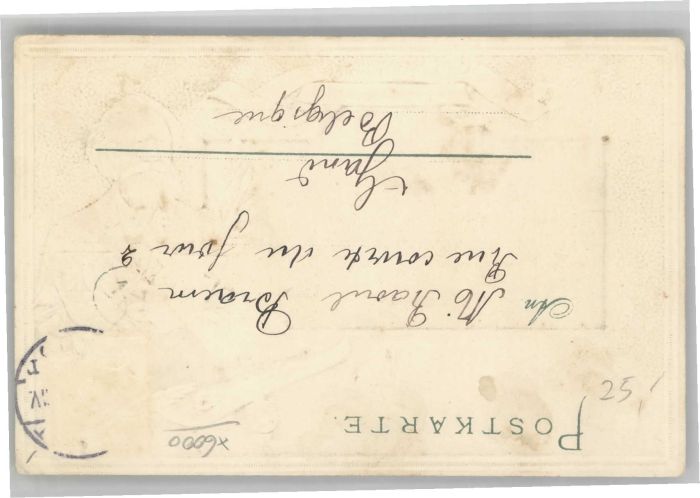 POSTKARTE.
An
Mr Raoul Braem
Rue courte du jour 2
Gand
Belgique
x6000
25